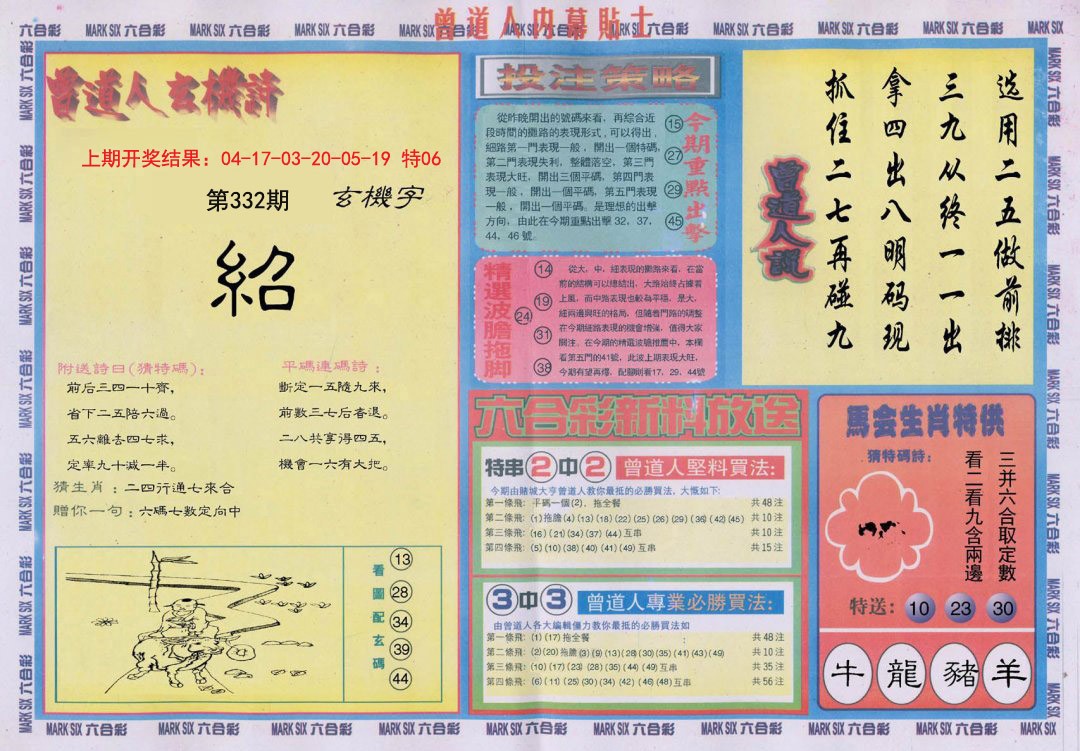 曾道人内幕貼士
MARK SIX 六合彩
曾道人玄機詩
上期开奖结果：04-17-03-20-05-19 特06
第332期 玄機字
紹
附送詩曰(猜特碼)：
前后三四一十齊，
省下二五陪六過。
五六離去四七求，
定率九十减一半。
平碼連碼詩：
斷定一五隨九來，
前數三七后春退。
二八共享得四五，
機會一六有大把。
猜生肖：二四行通七來合
贈你一句：六碼七數定向中
看圖配玄碼
13
28
34
39
44
投注策略
從昨晚開出的號碼來看，再綜合近
段時間的攤路的表現形式，可以得出，
細路第一門表現一般，開出一個特碼，
第二門表現失利，整體落空，第三門
表現大旺，開出三個平碼，第四門表
現一般，開出一個平碼，第五門表現
一般，開出一個平碼。是理想的出擊
方向，由此在今期重點出擊 32、37、
44、46 號。
今期重點出擊
15
27
29
45
精選波膽拖脚
14
19
24
31
38
從大、中、細表現的攤路來看，在當
前的結構可以總結出，大路始終占據着
上風，而中路表現也較為平穩，是大，
細兩邊興旺的格局，但隨着門路的調整
在今期細路表現的機會增強，值得大家
關注。在今期的精選波膽推薦中，本欄
看第五門的41號，此波上期表現大旺，
今期有望再爆，配脚則看17、29、44號
曾道人說
选用二五做前排
三九从终一一出
拿四出八明码现
抓住二七再碰九
六合彩新料放送
特串2中2 曾道人堅料買法：
今期由賭城大亨曾道人教你最抵的必勝買法，大慨如下：
第一條飛：平碼一個(2)，拖全餐 共48注
第二條飛：(1)拖膽(4)(13)(18)(22)(25)(26)(29)(36)(42)(45) 共10注
第三條飛：(16)(21)(34)(37)(44)互串 共10注
第四條飛：(5)(10)(38)(40)(41)(49)互串 共15注
3中3 曾道人專業必勝買法：
由曾道人各大編輯僵力教你最抵的必勝買法如
第一條飛：(1)(17)拖全餐 共48注
第二條飛：(2)(20)拖膽(3)(9)(13)(28)(30)(35)(41)(43)(49) 共10注
第三條飛：(10)(17)(23)(28)(35)(44)(49)互串 共35注
第四條飛：(6)(11)(25)(30)(34)(42)(46)(48)互串 共56注
馬会生肖特供
猜特碼詩：
三并六合取定數
看二看九含兩邊
特送：10 23 30
牛 龍 豬 羊